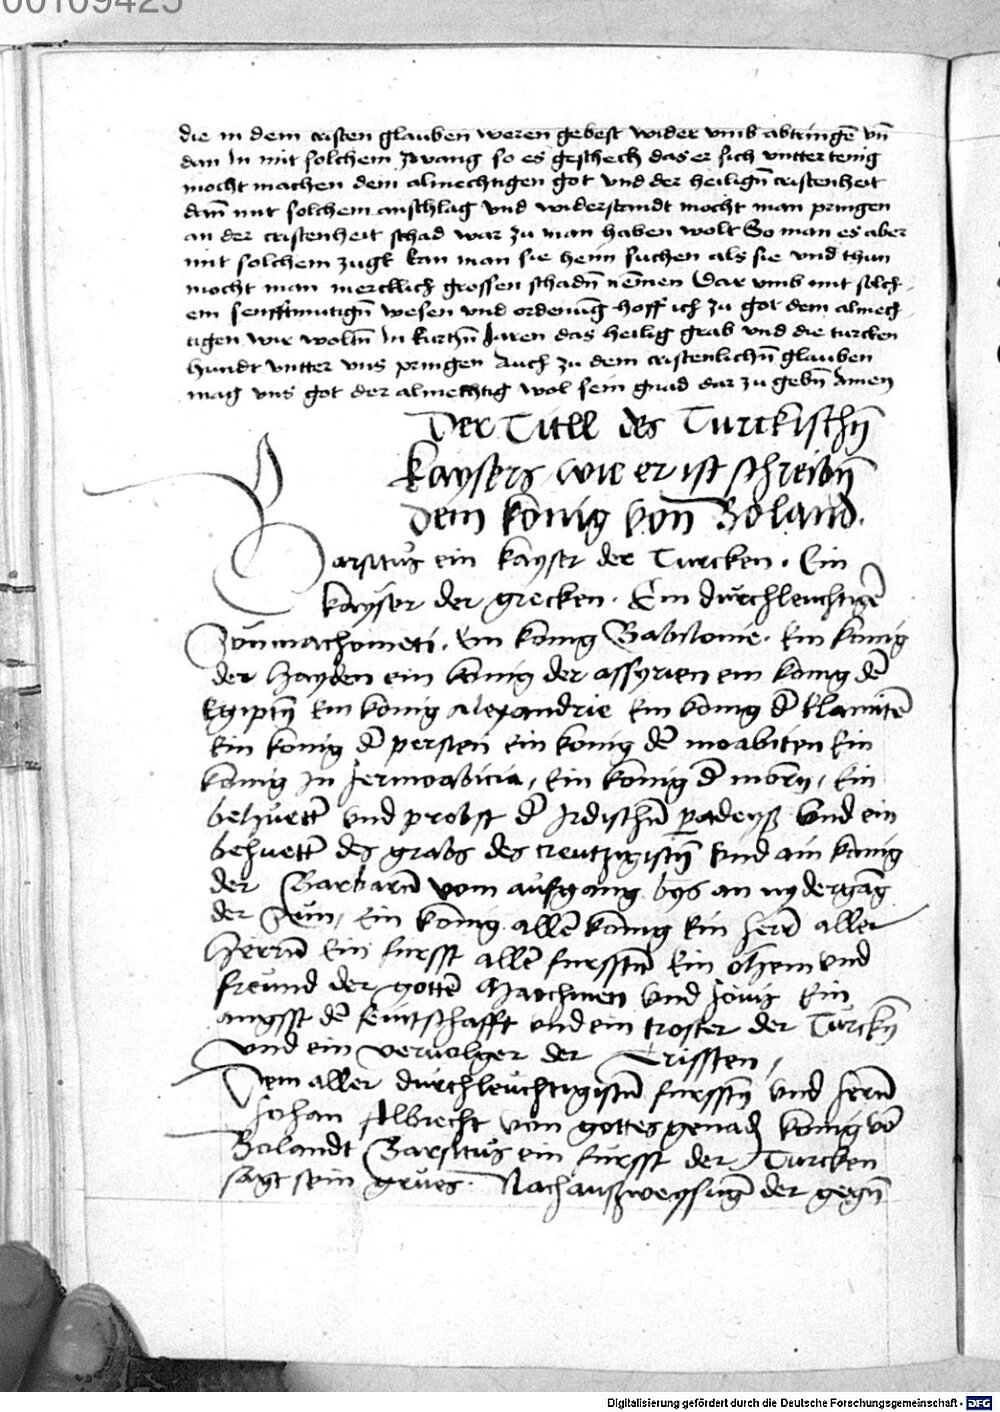 00109425
die in dem cristen glauben weren gebest wider vmb abtringē vn̄
dan In mit solchem zwang so es geschech das er sich vntter tenig
mocht machen dem almechtigen got vnd der heilign̄ cristenheit
dan̄ mit solchem anschlag vnd widerstandt mocht man pringen
an der cristenheit schad war zu man haben wolt So man es aber
mit solchem zugk kan man sie heim suchen als sie vnd thun
mocht man mercklich grossen schadn̄ nemen Dar vmb mit solch
em senfftmutign̄ wesen vnd ordenūg hoff ich zu got dem almech
tigen wir wolln̄ In kurtzn̄ Jaren das heilig grab vnd die turcken
hundt vntter vns pringen Auch zu dem cristenlichn̄ glauben
mag vns got der almechtig wol sein gnad dar zu gebn̄ Amen
Der Titell des Turckischn̄
kaysers wie er ist schreibn̄
dem konig von̄ Boland.
Barsitus ein kayser der Turcken. Ein
kayser der grecken. Ein durchleuchtiger
Son machometi. Ein konig Babilonie. Ein konig
der Hayden ein konig der assyrien ein konig de͂
Egiptn̄ Ein konig Alexandrie Ein konig d͂
Ein konig d͂ persien Ein konig de͂ moabiten Ein
konig In Ein konig d͂ morn, Ein
behuett͂ vnd probst d͂ Irdischn̄ padeyß Vnd ein
behuett͂ des grabs des creutzigistn̄ Vnd ain konig
der Barbarn̄ vom aufgang bys an nydergāg
der Sun, Ein konig alle͂ konig Ein herr͂ aller
Herrn̄ Ein furst alle͂ furstn̄ Ein ohem vnd
freund der gotte͂ Machmeti vnd Jouis Ein
angst de͂ feintschafft vnd ein troster der Turckn̄
vnd ein vervolger der Cristen,
Dem aller durchleuchtigistn̄ furstn̄ vnd herrn̄
Johan Albrecht von gottes genadn̄ konig vo͂
Bolandt Barsitus ein furst der Turcken
sagt sein grues. Nach außweysung der gegn̄
Digitalisierung gefördert durch die Deutsche Forschungsgemeinschaft - DFG